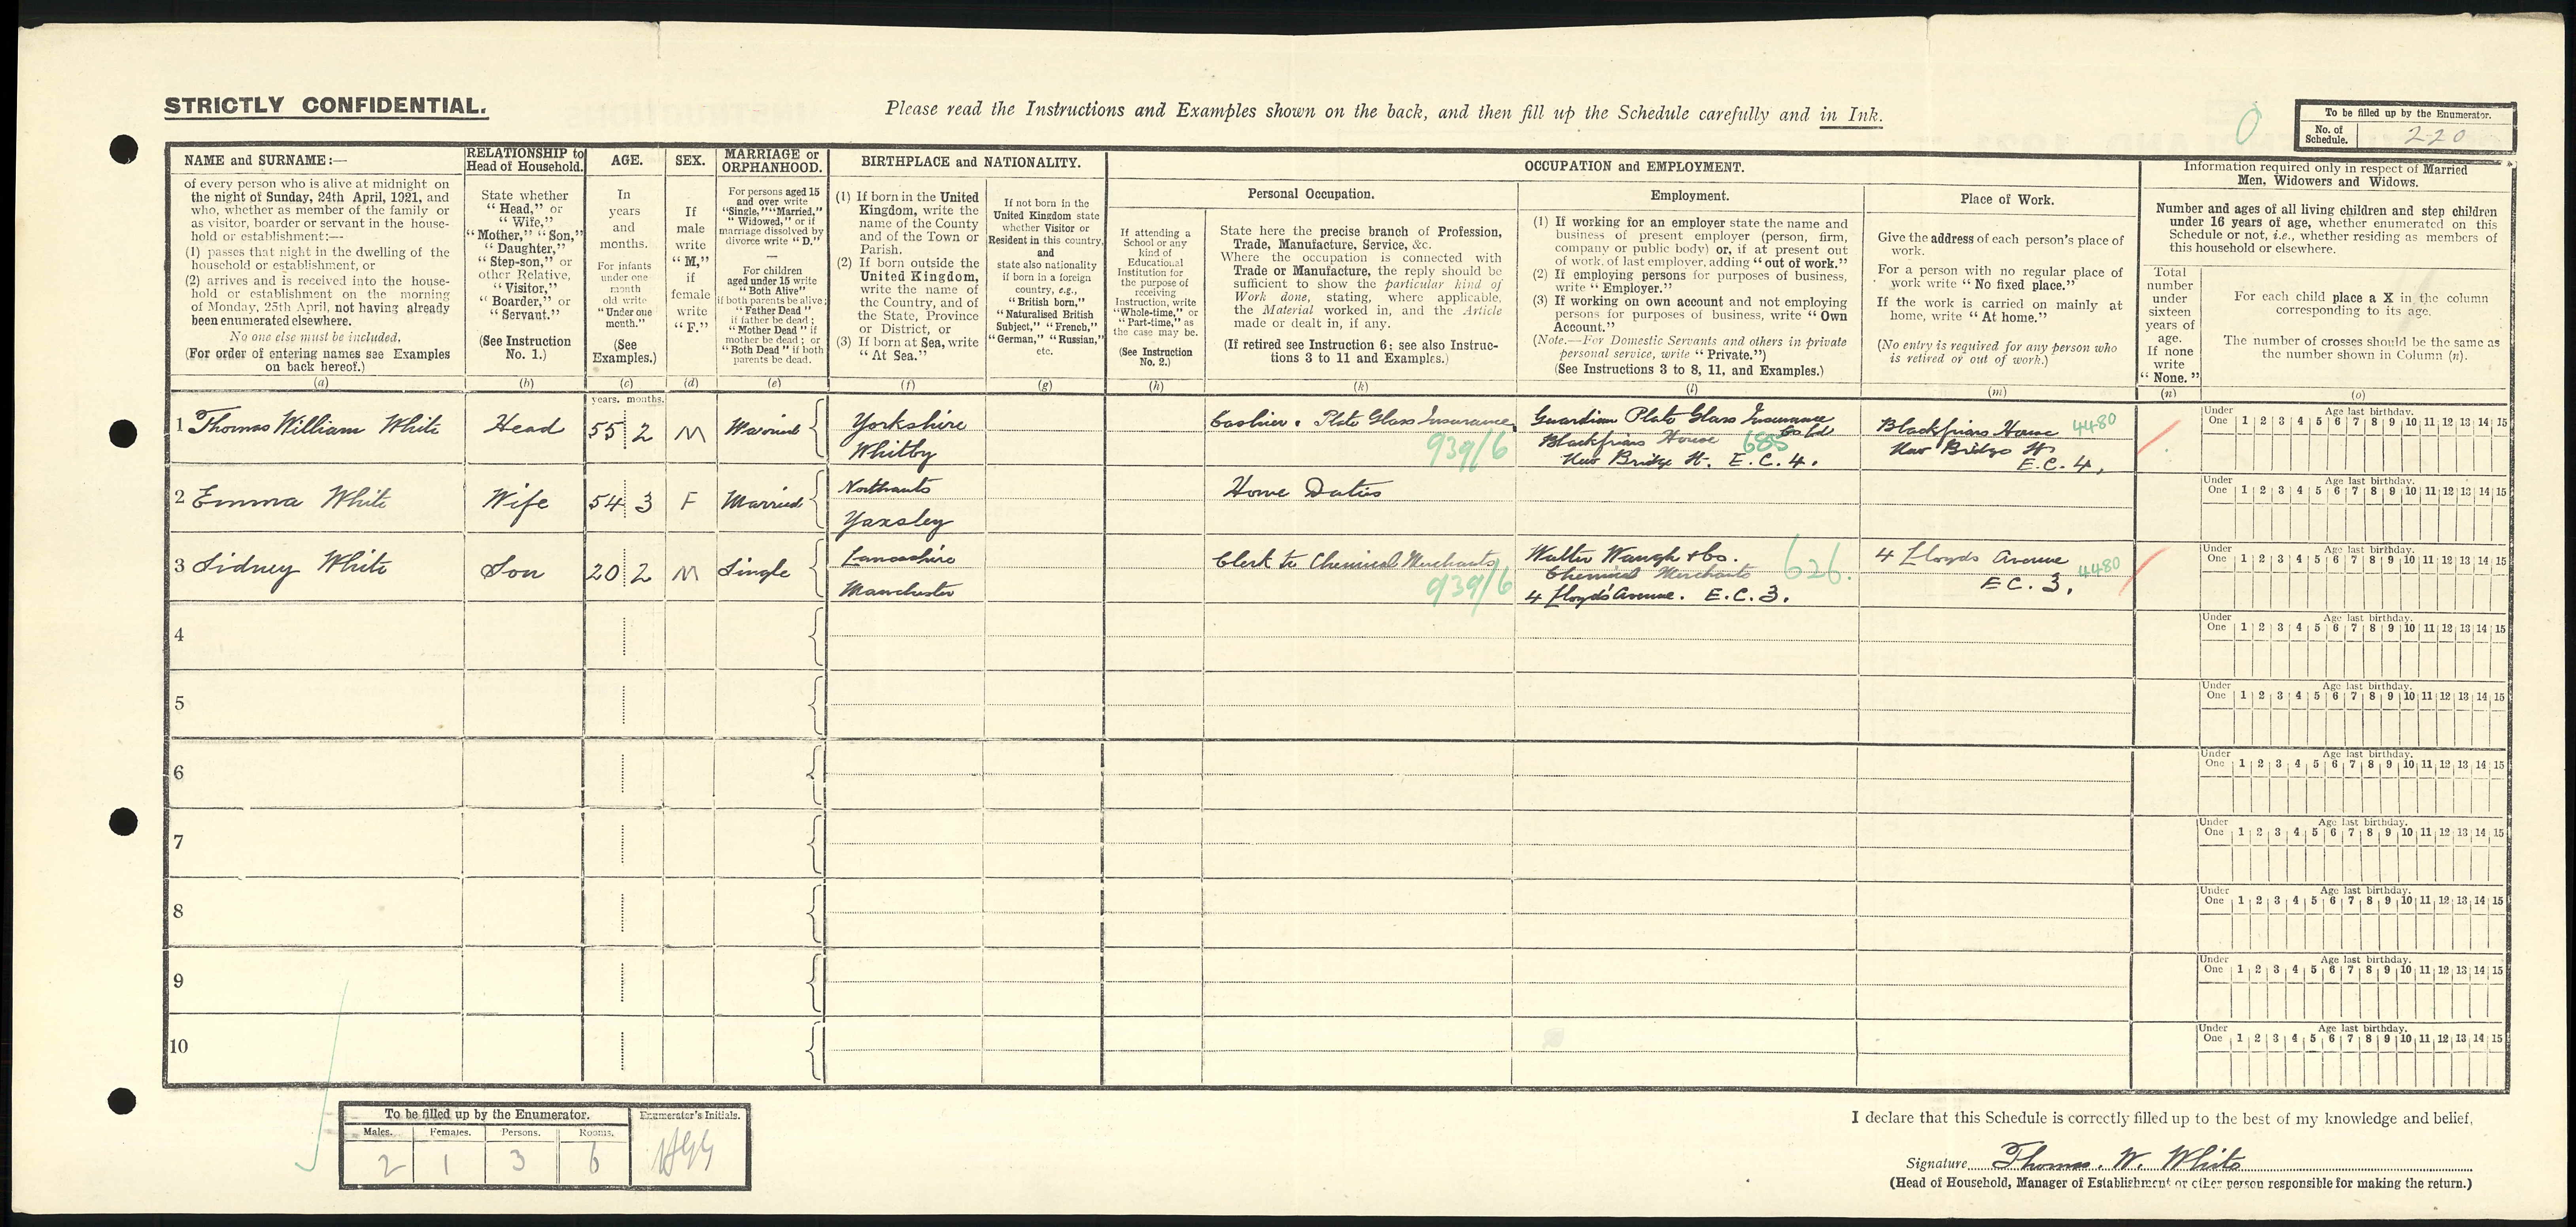 STRICTLY CONFIDENTIAL.
Please read the Instructions and Examples shown on the back, and then fill up the Schedule carefully and in Ink.
0
To be filled up by the Enumerator.
No. of Schedule. 220
NAME and SURNAME:—
of every person who is alive at midnight on
the night of Sunday, 24th April, 1921, and
who, whether as member of the family or
as visitor, boarder or servant in the house-
hold or establishment:—
(1) passes that night in the dwelling of the
household or establishment, or
(2) arrives and is received into the house-
hold or establishment on the morning
of Monday, 25th April, not having already
been enumerated elsewhere.
No one else must be included.
(For order of entering names see Examples
on back hereof.)
(a)
RELATIONSHIP to
Head of Household.
State whether
"Head," or
"Wife,"
"Mother," "Son,"
"Daughter,"
"Step-son," or
other Relative,
"Visitor,"
"Boarder," or
"Servant."
(See Instruction
No. 1.)
(b)
AGE.
In
years
and
months.
For infants
under one
month
old write
"Under one
month."
(See
Examples.)
(c)
SEX.
If
male
write
"M,"
if
female
write
"F."
(d)
MARRIAGE or
ORPHANHOOD.
For persons aged 15
and over write
"Single," "Married,"
"Widowed," or if
marriage dissolved by
divorce write "D."
—
For children
aged under 15 write
"Both Alive"
if both parents be alive;
"Father Dead"
if father be dead;
"Mother Dead" if
mother be dead; or
"Both Dead" if both
parents be dead.
(e)
BIRTHPLACE and NATIONALITY.
(1) If born in the United
Kingdom, write the
name of the County
and of the Town or
Parish.
(2) If born outside the
United Kingdom,
write the name of
the Country, and of
the State, Province
or District, or
(3) If born at Sea, write
"At Sea."
(f)
If not born in the
United Kingdom state
whether Visitor or
Resident in this country,
and
state also nationality
if born in a foreign
country, e.g.,
"British born,"
"Naturalised British
Subject," "French,"
"German," "Russian,"
etc.
(g)
OCCUPATION and EMPLOYMENT.
Personal Occupation.
If attending a
School or any
kind of
Educational
Institution for
the purpose of
receiving
Instruction, write
"Whole-time," or
"Part-time," as
the case may be.
(See Instruction
No. 2.)
(h)
State here the precise branch of Profession,
Trade, Manufacture, Service, &c.
Where the occupation is connected with
Trade or Manufacture, the reply should be
sufficient to show the particular kind of
Work done, stating, where applicable,
the Material worked in, and the Article
made or dealt in, if any.
(If retired see Instruction 6; see also Instruc-
tions 3 to 11 and Examples.)
(k)
Employment.
(1) If working for an employer state the name and
business of present employer (person, firm,
company or public body) or, if at present out
of work, of last employer, adding "out of work."
(2) If employing persons for purposes of business,
write "Employer."
(3) If working on own account and not employing
persons for purposes of business, write "Own
Account."
(Note.—For Domestic Servants and others in private
personal service, write "Private.")
(See Instructions 3 to 8, 11, and Examples.)
(l)
Place of Work.
Give the address of each person's place of
work.
For a person with no regular place of
work write "No fixed place."
If the work is carried on mainly at
home, write "At home."
(No entry is required for any person who
is retired or out of work.)
(m)
Information required only in respect of Married
Men, Widowers and Widows.
Number and ages of all living children and step children
under 16 years of age, whether enumerated on this
Schedule or not, i.e., whether residing as members of
this household or elsewhere.
Total
number
under
sixteen
years of
age.
If none
write
"None."
(n)
For each child place a X in the column
corresponding to its age.
The number of crosses should be the same as
the number shown in Column (n).
(o)
years. months.
1 Thomas William White Head 55 2 M Married
Yorkshire
Whitby
Cashier. Plate Glass Insurance
939/6
Guardian Plate Glass Insurance
Co Ltd
Blackfriars House 685
New Bridge St. E.C.4.
Blackfriars House 4480
New Bridge St
E.C.4.
Under One Age last birthday. 1 2 3 4 5 6 7 8 9 10 11 12 13 14 15
2 Emma White Wife 54 3 F Married
Northants
Yaxley
Home Duties
Under One Age last birthday. 1 2 3 4 5 6 7 8 9 10 11 12 13 14 15
3 Sidney White Son 20 2 M Single
Lancashire
Manchester
Clerk to Chemical Merchants
939/6
Walter Waugh & Co.
Chemical Merchants 626.
4 Lloyd's Avenue. E.C.3.
4 Lloyds Avenue
E.C.3. 4480
Under One Age last birthday. 1 2 3 4 5 6 7 8 9 10 11 12 13 14 15
4
Under One Age last birthday. 1 2 3 4 5 6 7 8 9 10 11 12 13 14 15
5
Under One Age last birthday. 1 2 3 4 5 6 7 8 9 10 11 12 13 14 15
6
Under One Age last birthday. 1 2 3 4 5 6 7 8 9 10 11 12 13 14 15
7
Under One Age last birthday. 1 2 3 4 5 6 7 8 9 10 11 12 13 14 15
8
Under One Age last birthday. 1 2 3 4 5 6 7 8 9 10 11 12 13 14 15
9
Under One Age last birthday. 1 2 3 4 5 6 7 8 9 10 11 12 13 14 15
10
Under One Age last birthday. 1 2 3 4 5 6 7 8 9 10 11 12 13 14 15
To be filled up by the Enumerator.
Enumerator's Initials.
Males. Females. Persons. Rooms.
2 1 3 6
I declare that this Schedule is correctly filled up to the best of my knowledge and belief.
Signature Thomas. W. White
(Head of Household, Manager of Establishment or other person responsible for making the return.)